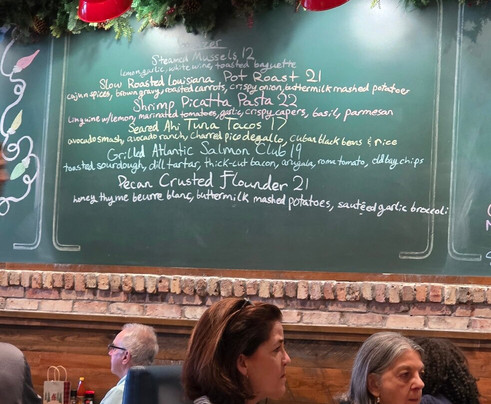 Steamed Mussels 12
lemon, garlic, white wine, toasted baguette
Slow Roasted Louisiana Pot Roast 21
cajun spices, brown gravy, roasted carrots, crispy onion, buttermilk mashed potatoes
Shrimp Picatta Pasta 22
linguine w/lemon, marinated tomatoes, garlic, crispy capers, basil, parmesan
Seared Ahi Tuna Tacos 17
avocado smash, avocado ranch, charred pico de gallo, cuban black beans & rice
Grilled Atlantic Salmon Club 19
toasted sourdough, dill tartar, thick-cut bacon, arugala, roma tomato, old bay chips
Pecan Crusted Flounder 21
honey thyme beurre blanc, buttermilk mashed potatoes, sautéed garlic broccoli